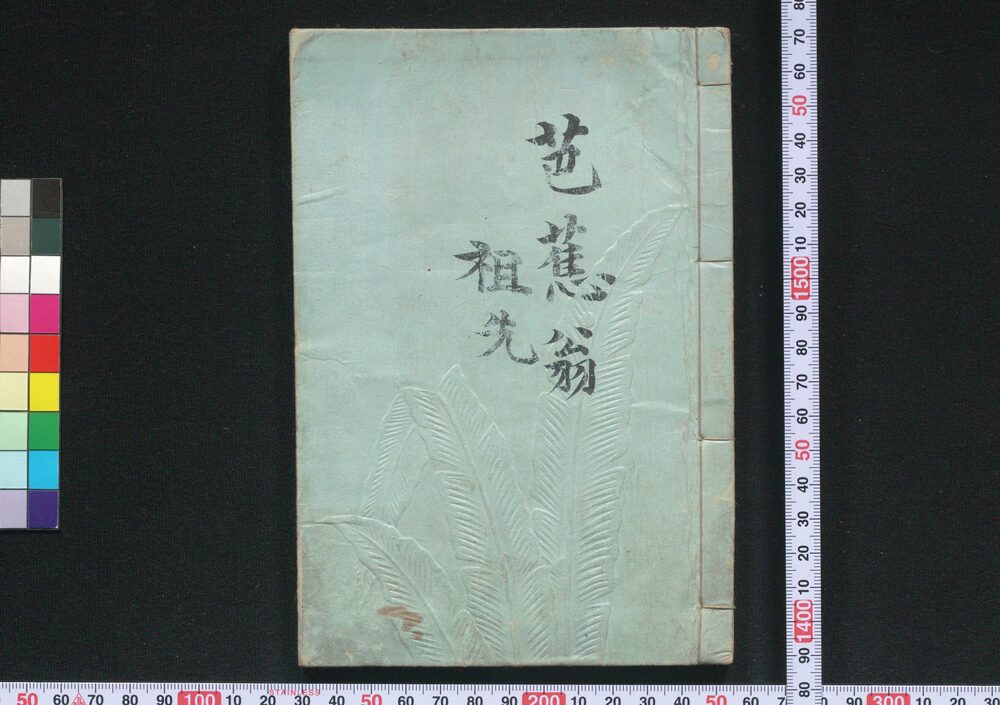 芭蕉翁
祖先
80
70
60
50
40
30
20
10
1500
90
80
70
60
50
40
30
20
10
1400
90
80
50 60 70 80 90 100 10 20 30 40 50 60 70 80 90 200 10 20 30 40 50 60 70 80 90 300 10 20 30
STAINLESS